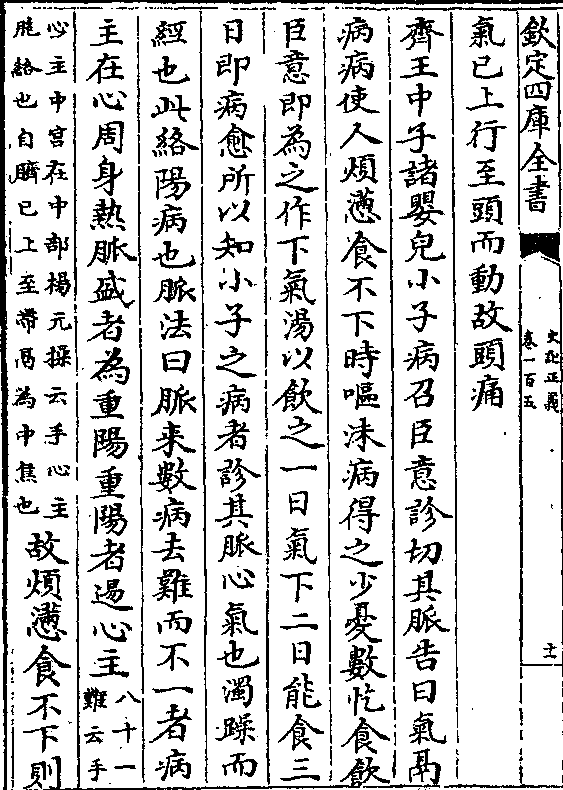 欽定四庫全書
史記正義
卷一百五
十一
氣已上行至頭而動故頭痛
齊王中子諸嬰兒小子病召臣意診切其脈告曰氣鬲
病病使人煩懣食不下時嘔沫病得之少憂數忔食飲
臣意即為之作下氣湯以飲之一日氣下二日能食三
日即病愈所以知小子之病者診其脈心氣也濁躁而
經也此絡陽病也脈法曰脈来數病去難而不一者病
主在心周身熱脈盛者為重陽重陽者逷心主
八十一
難云手
心主中宫在中部楊元操云手心主
胞絡也自臍已上至帶鬲為中焦也
故煩懣食不下則